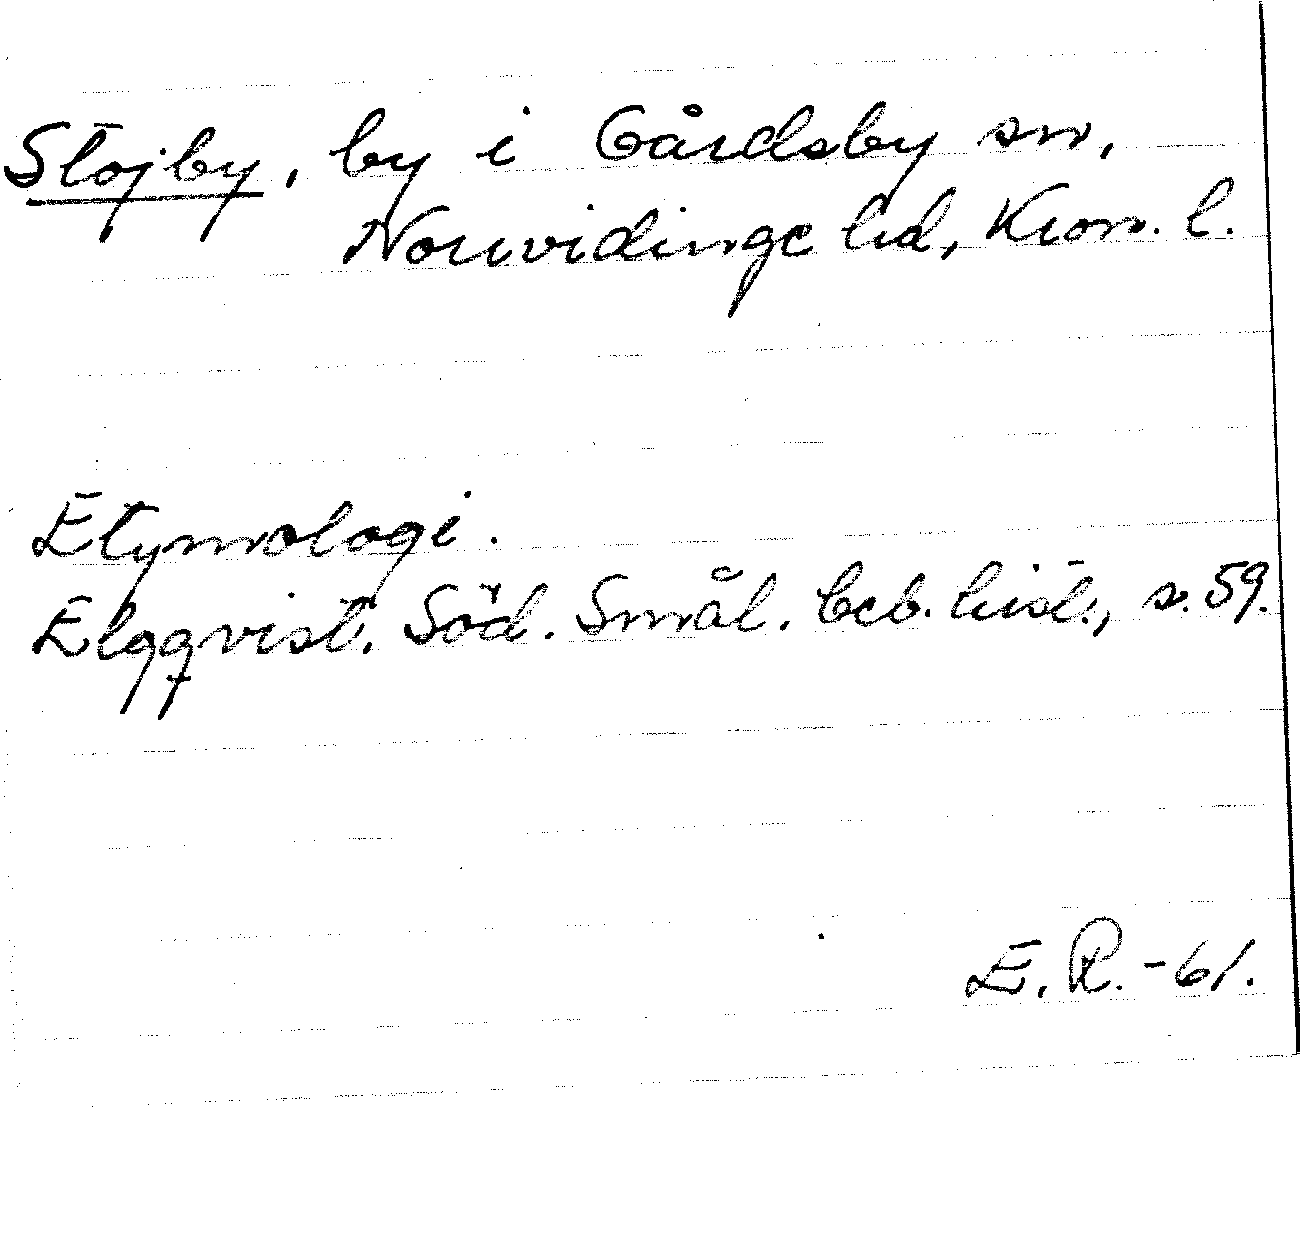 Stojby, by i Gårdsby sn,
Norrvidinge hd, Kron. l.
Etymologi.
Elgqvist. Söd. Smål. beb. hist., s. 59.
E. R. -61.